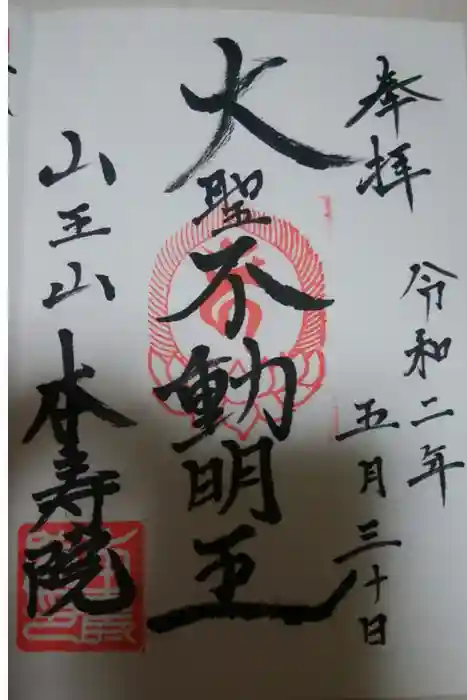 奉拝
令和二年
五月三十日
大聖不動明王
山王山本寿院